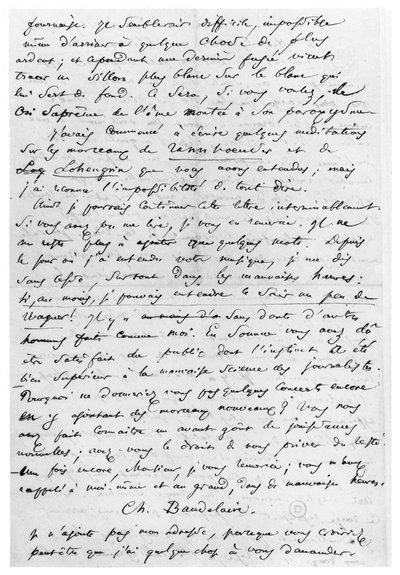 fournaise. Il semblerait difficile, impossible
même d'arriver à quelque chose de plus
ardent; et cependant une dernière fusée vient
tracer un sillon plus blanc sur le blanc qui
lui sert de fond. Ce sera, si vous voulez, le
cri suprême de l'âme montée à son paroxysme.
J'avais commencé à écrire quelques méditations
sur les morceaux de Tannhoeuser et de
Lohengrin que nous avons entendus; mais
j'ai reconnu l'impossibilité de tout dire.
Ainsi je pourrais continuer cette lettre interminablement.
Si vous avez pu me lire, je vous en remercie. Il ne
me reste plus à ajouter que quelques mots. Depuis
le jour où j'ai entendu votre musique, je me dis
sans cesse, surtout dans les mauvaises heures:
Si, au moins, je pouvais entendre ce soir un peu de
Wagner! Il y a sans doute d'autres
hommes faits comme moi. En somme vous avez dû
être satisfait du public dont l'instinct a été
bien supérieur à la mauvaise science des journalistes.
Pourquoi ne donneriez vous pas quelques concerts encore
en y ajoutant des morceaux nouveaux? Vous nous
avez fait connaître un avant-goût de jouissances
nouvelles; avez vous le droit de nous priver du reste?
Une fois encore, Monsieur, je vous remercie; vous m'avez
rappelé à moi-même et au grand, dans de mauvaises heures.
Ch. Baudelaire.
Je n'ajoute pas mon adresse, parceque vous croiriez
peut-être que j'ai quelque chose à vous demander.